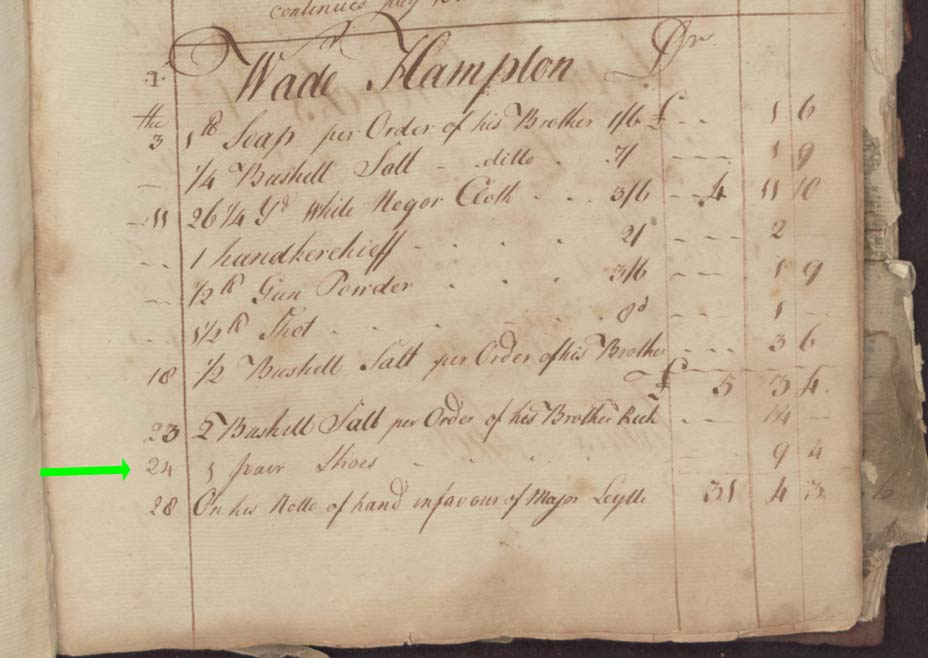 continues pay
1 Wade Hampton Dr
the 3 1 lb Soap per Order of his Brother 1/6 £ .. 1 6
1/4 Bushell Salt - ditto . 7/ --- 1 9
11 26 1/4 Yd White Negor Cloth . . . 3/6 -- 4 11 10
1 handkerchieff - . . . 2/ --- 2
1/2 lb Gun Powder . . . 3/6 -- 1 9
1 1/2 lb Shot . . . . . 8d --- 1 -
18 1/2 Bushell Salt per Order of his Brother --- 3 6
£ 5 3 4.
23 2 Bushell Salt per Order of his Brother Rich -- 14 --
24 1 pair Shoes . . . . . 9 4
28 On his Notte of hand in favour of Major Leyle 31 4 3